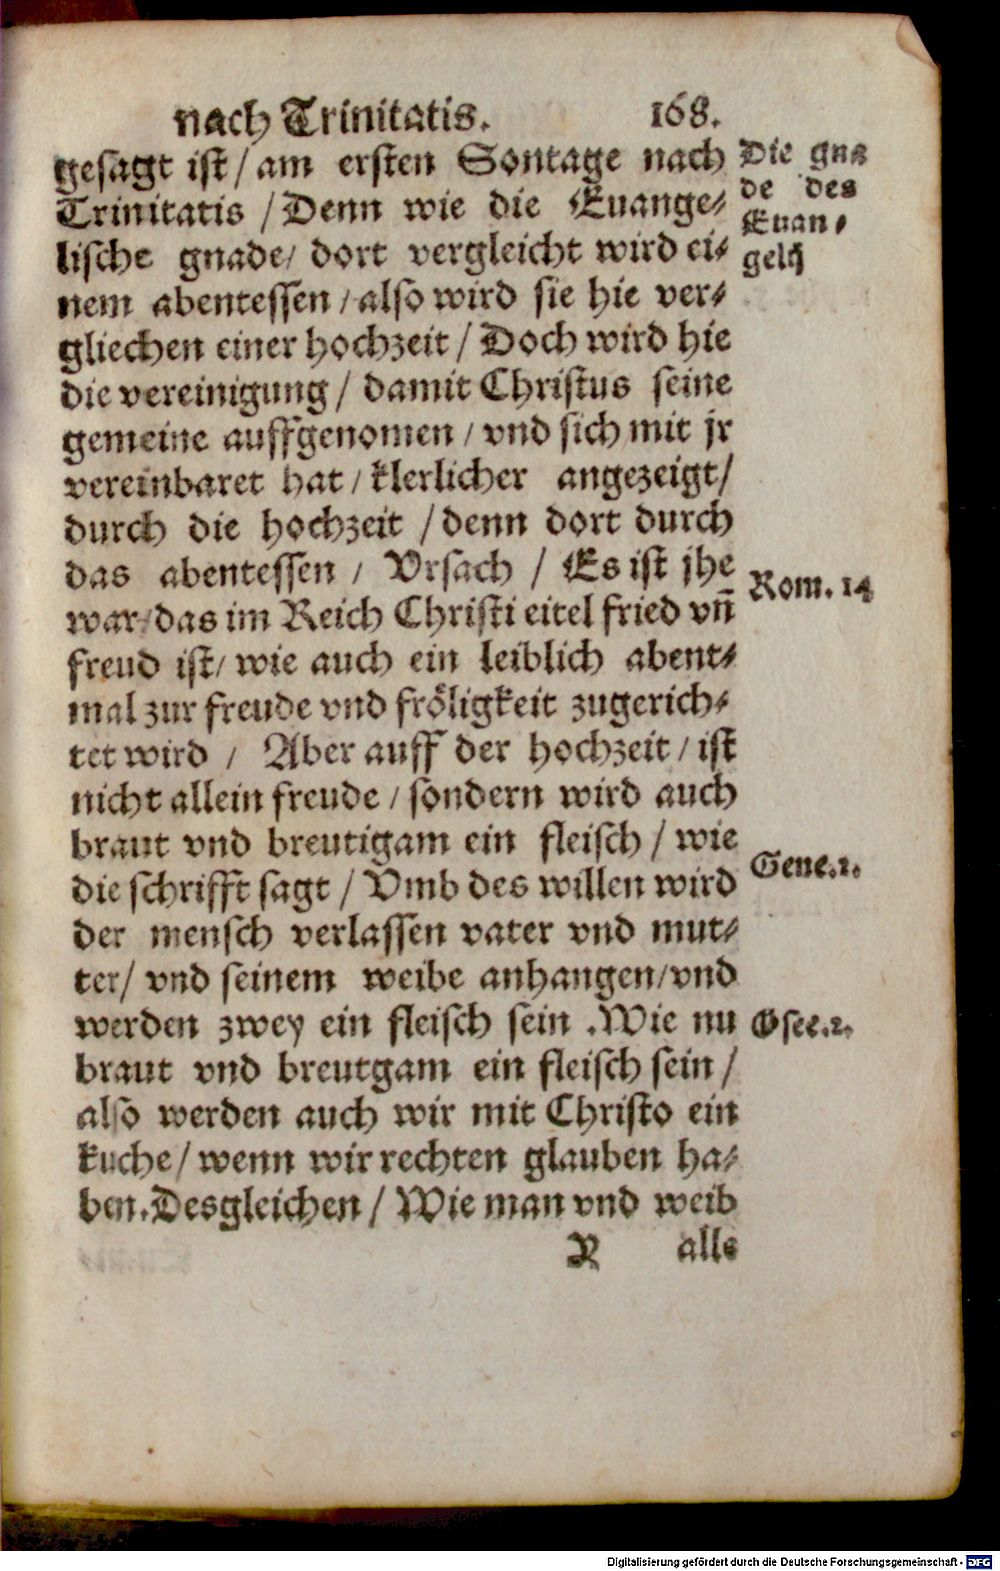 nach Trinitatis. 168.
gesagt ist / am ersten Sontage nach
Trinitatis / Denn wie die Euange-
lische gnade / dort vergleicht wird ei-
nem abentessen / also wird sie hie ver-
gliechen einer hochzeit / Doch wird hie
die vereinigung / damit Christus seine
gemeine auffgenomen / vnd sich mit jr
vereinbaret hat / klerlicher angezeigt /
durch die hochzeit / denn dort durch
das abentessen / Vrsach / Es ist jhe
war / das im Reich Christi eitel fried vn̄
freud ist / wie auch ein leiblich abent-
mal zur freude vnd fröligkeit zugerich-
tet wird / Aber auff der hochzeit / ist
nicht allein freude / sondern wird auch
braut vnd breutigam ein fleisch / wie
die schrifft sagt / Vmb des willen wird
der mensch verlassen vater vnd mut-
ter / vnd seinem weibe anhangen / vnd
werden zwey ein fleisch sein . Wie nu
braut vnd breutgam ein fleisch sein /
also werden auch wir mit Christo ein
kuche / wenn wir rechten glauben ha-
ben. Desgleichen / Wie man vnd weib
Y alle
Die gna
de des
Euan-
gelij
Rom. 14
Gene. 2.
Osee. 2.
Digitalisierung gefördert durch die Deutsche Forschungsgemeinschaft - DFG